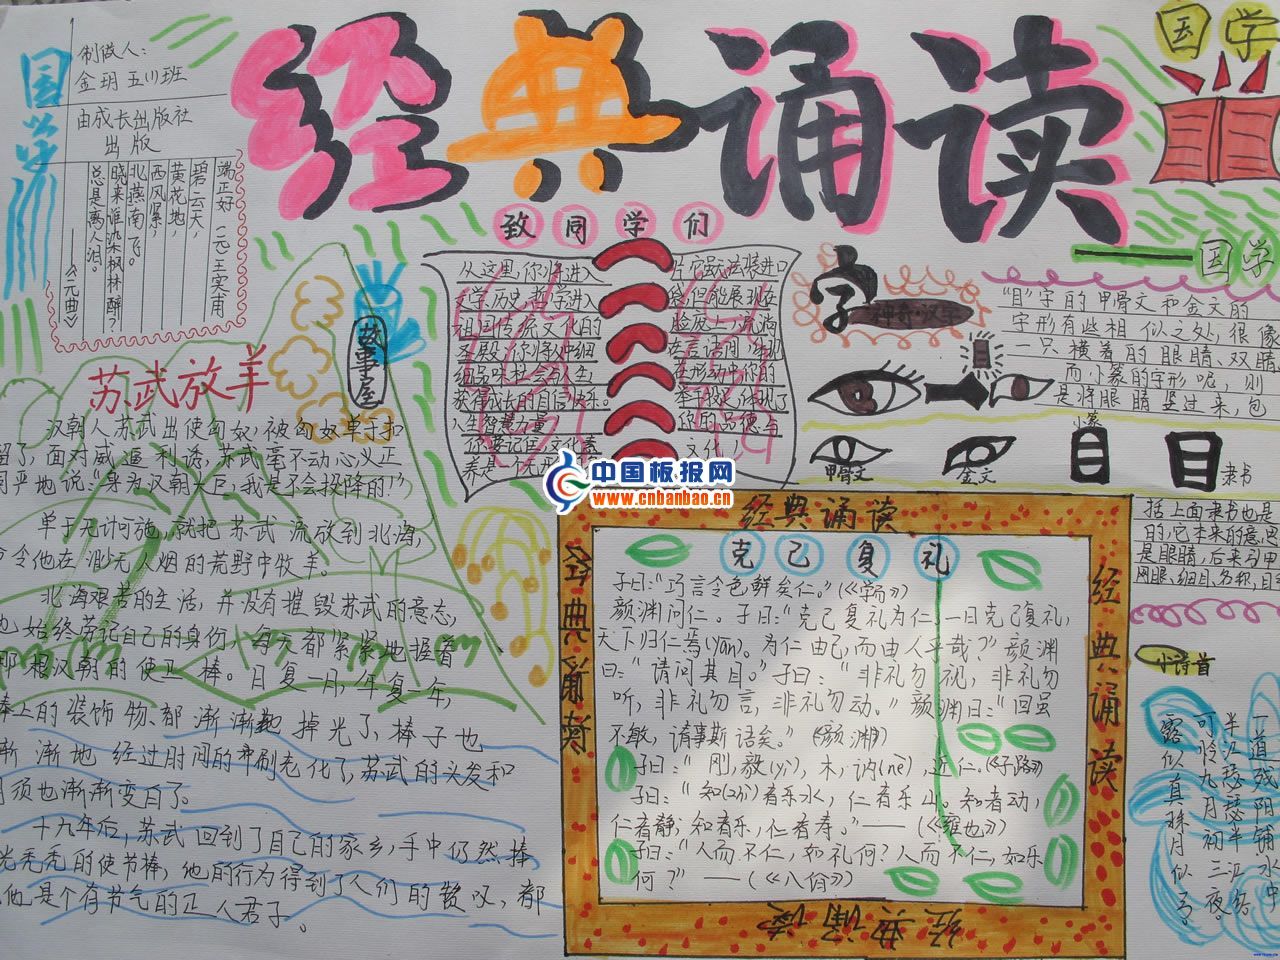 经典诵读
国学
制做人：
金玥 五(1)班
由成长出版社
出版
端正好 (元)王实甫
碧云天，
黄花地，
西风紧，
北燕南了。
晓来谁染枫林醉？
总是离人泪。
——《元曲》
苏武放羊
故事屋
汉朝人苏武出使匈奴，被匈奴单于扣
留了，面对威逼利诱，苏武毫不动心，义正
严地说："身为汉朝大臣，我是不会投降的！"
单于无计可施，就把苏武流放到北海，
令他在渺无人烟的荒野中牧羊。
北海艰苦的生活，并没有摧毁苏武的意态，
也始终劳记自己的身份，每天都紧紧地握着
那根汉朝的使卫棒。月复一月，年复一年，
棒上的装饰物、都渐渐地掉光了，棒子也
渐渐地经过时间的冲刷老化了，苏武的头发和
胡须也渐渐变白了。
十九年后，苏武回到了自己的家乡，手中仍然捧
光秃秃的使节棒，他的行为得到了人们的赞叹，都
他是个有节气的正人君子。
致同学们
从这里，你将进入
文学、历史、哲学，进入
祖国传统文化的
圣殿，你将从中细
细品味社会与人生，
获得成长的自信、快乐、
人生智慧力量
你要记住，文化素
养是一个无形
袋，但能展现在
脸庞上，流淌
在言语间，体现
在形动中你的
举手投足，体现了
你的品德与
文化！
中国板报网
www.cnbanbao.cn
国学
国学
字
神奇·汉字
"目"字的甲骨文和金文的
字形有些相似之处，很像
一只横着的眼睛、双睛，
而小篆的字形呢，则
是将眼睛竖过来，包
目
小篆
甲骨文
金文
目
目
隶书
括上面隶书也是
的，它本来的意思
是眼睛，后来引申
网眼、细目、名称，目
经典诵读
经典诵读
经典诵读
经典诵读
克己复礼
子曰："巧言令色，鲜矣仁。"（《学而》）
颜渊问仁。子曰："克己复礼为仁，一日克己复礼，
天下归仁焉(yān)。为仁由己，而由人乎哉？"颜渊
曰："请问其目。"子曰："非礼勿视，非礼勿
听，非礼勿言，非礼勿动。"颜渊曰："回虽
不敏，请事斯语矣。"（《颜渊》）
子曰："刚，毅(yì)，木，讷(nè)，近仁。《子路》
子曰："知(zhì)者乐水，仁者乐山。知者动，
仁者静；知者乐，仁者寿。"——（《雍也》）
子曰："人而不仁，如礼何？人而不仁，如乐
何？"——（《八佾》）
小诗首
一道残阳铺水中
半江瑟瑟半江红
可怜九月初三夜
露似真珠月似弓。